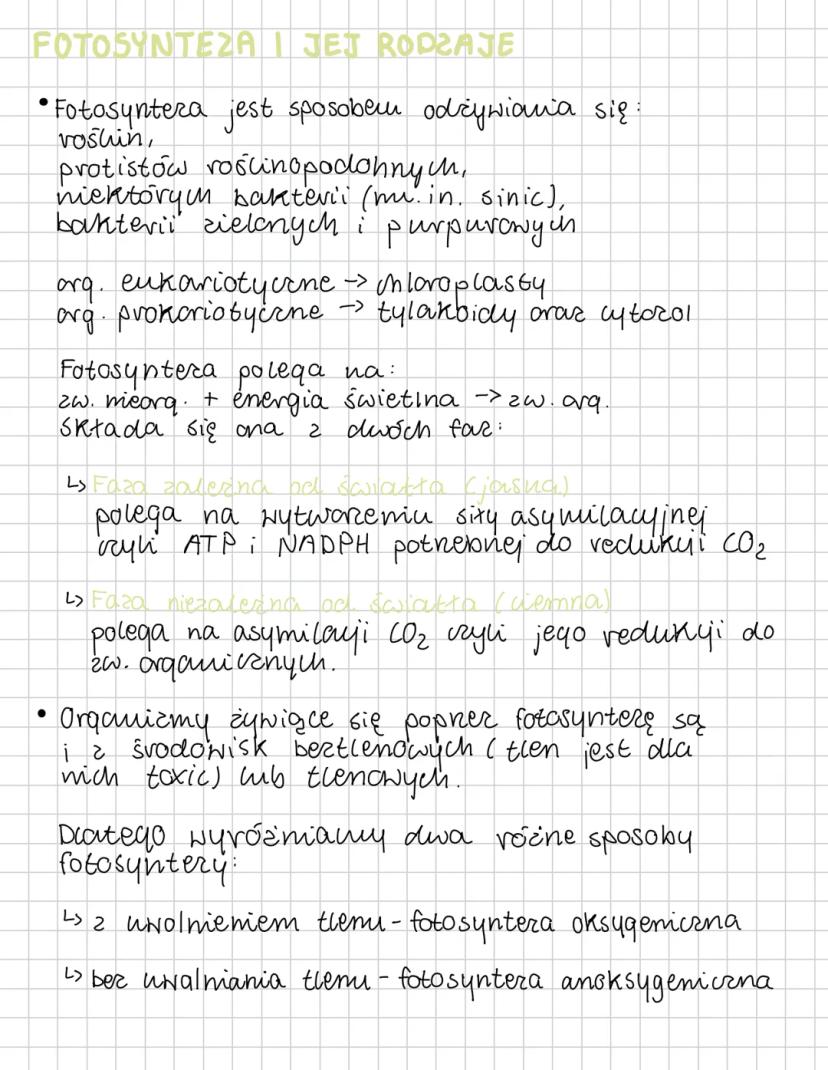 FOTOSYNTEZA I JEJ RODZAJE
• Fotosynteza jest sposobem odżywiania się:
roślin,
protistów roślinopodobnych,
niektórych bakterii (m.in. sinic),
bakterii zielonych i purpurowych
org. eukariotyczne -> chloroplasty
org. prokariotyczne -> tylakoidy oraz cytozol
Fotosynteza polega na:
zw. nieorg. + energia świetlna -> zw. org.
Składa się ona z dwóch faz:
↳ Faza zależna od światła (jasna)
polega na wytworzeniu siły asymilacyjnej
czyli ATP i NADPH potrzebnej do redukcji CO₂
↳ Faza niezależna od światła (ciemna)
polega na asymilacji CO₂ czyli jego redukcji do
zw. organicznych.
• Organizmy żywiące się poprzez fotosyntezę są
i z środowisk beztlenowych (tlen jest dla
nich toxic) lub tlenowych.
Dlatego wyróżniamy dwa różne sposoby
fotosyntezy:
↳ z uwolnieniem tlenu - fotosynteza oksygeniczna
↳ bez uwalniania tlenu - fotosynteza anoksygeniczna